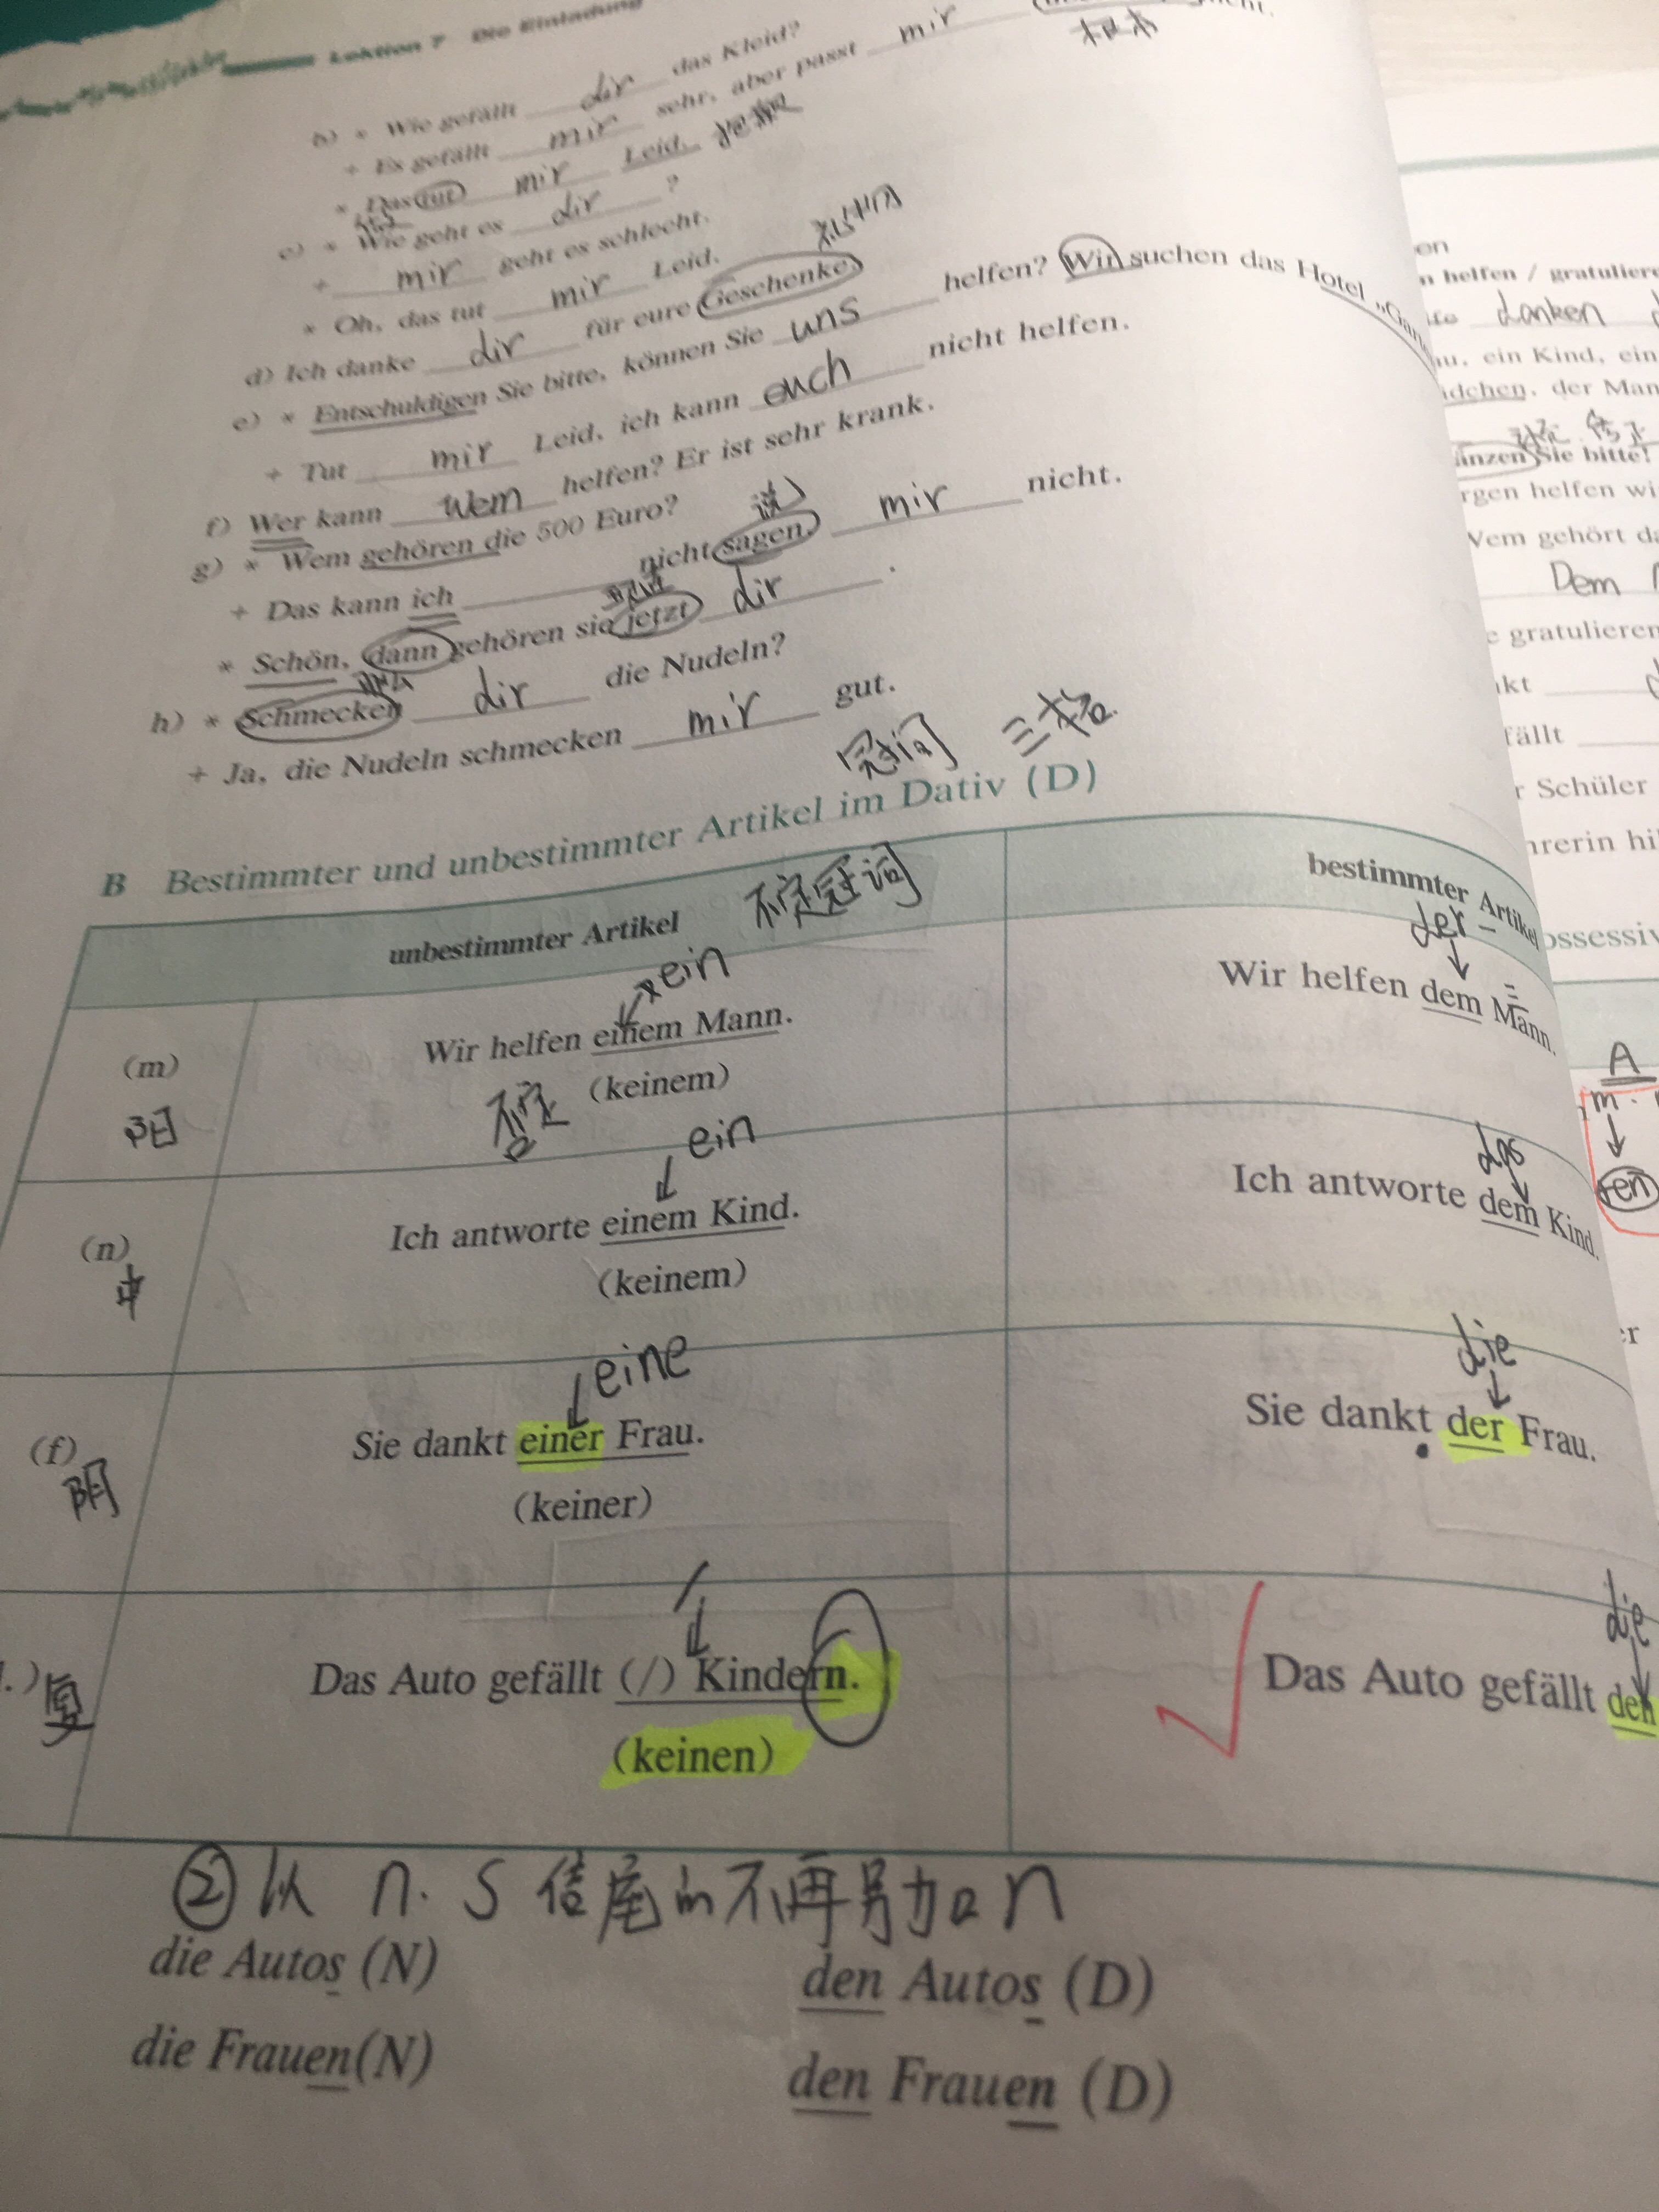 Lektion 7 Die Einladung
b) * Wie gefällt dir das Kleid?
+ Es gefällt mir sehr, aber passt mir
* Das tut mir Leid. 抱歉
c) * Wie geht es dir ?
+ mir geht es schlecht.
* Oh, das tut mir Leid.
d) Ich danke dir für eure Geschenke. 礼物
e) * Entschuldigen Sie bitte, können Sie uns helfen? Wir suchen das Hotel
+ Tut mir Leid, ich kann euch nicht helfen.
f) Wer kann wem helfen? Er ist sehr krank.
g) * Wem gehören die 500 Euro? 说
+ Das kann ich nicht sagen. mir nicht.
* Schön, dann gehören sie jetzt dir .
h) * Schmecken dir die Nudeln?
+ Ja, die Nudeln schmecken mir gut.
冠词 三格
B Bestimmter und unbestimmter Artikel im Dativ (D)
unbestimmter Artikel 不定冠词
bestimmter Artikel
(m) 阳
ein
Wir helfen einem Mann.
(keinem)
der
Wir helfen dem Mann.
(n) 中
ein
Ich antworte einem Kind.
(keinem)
das
Ich antworte dem Kind.
(f) 阴
eine
Sie dankt einer Frau.
(keiner)
die
Sie dankt der Frau.
复
Das Auto gefällt (/) Kindern.
(keinen)
die
Das Auto gefällt den
②以 n. s 结尾的不再另加 n
die Autos (N) den Autos (D)
die Frauen(N) den Frauen (D)
helfen
danken
ein Kind, ein
der Man
Sie bitte!
helfen
gehört
Dem
gratulieren
Schüler
A
m
en